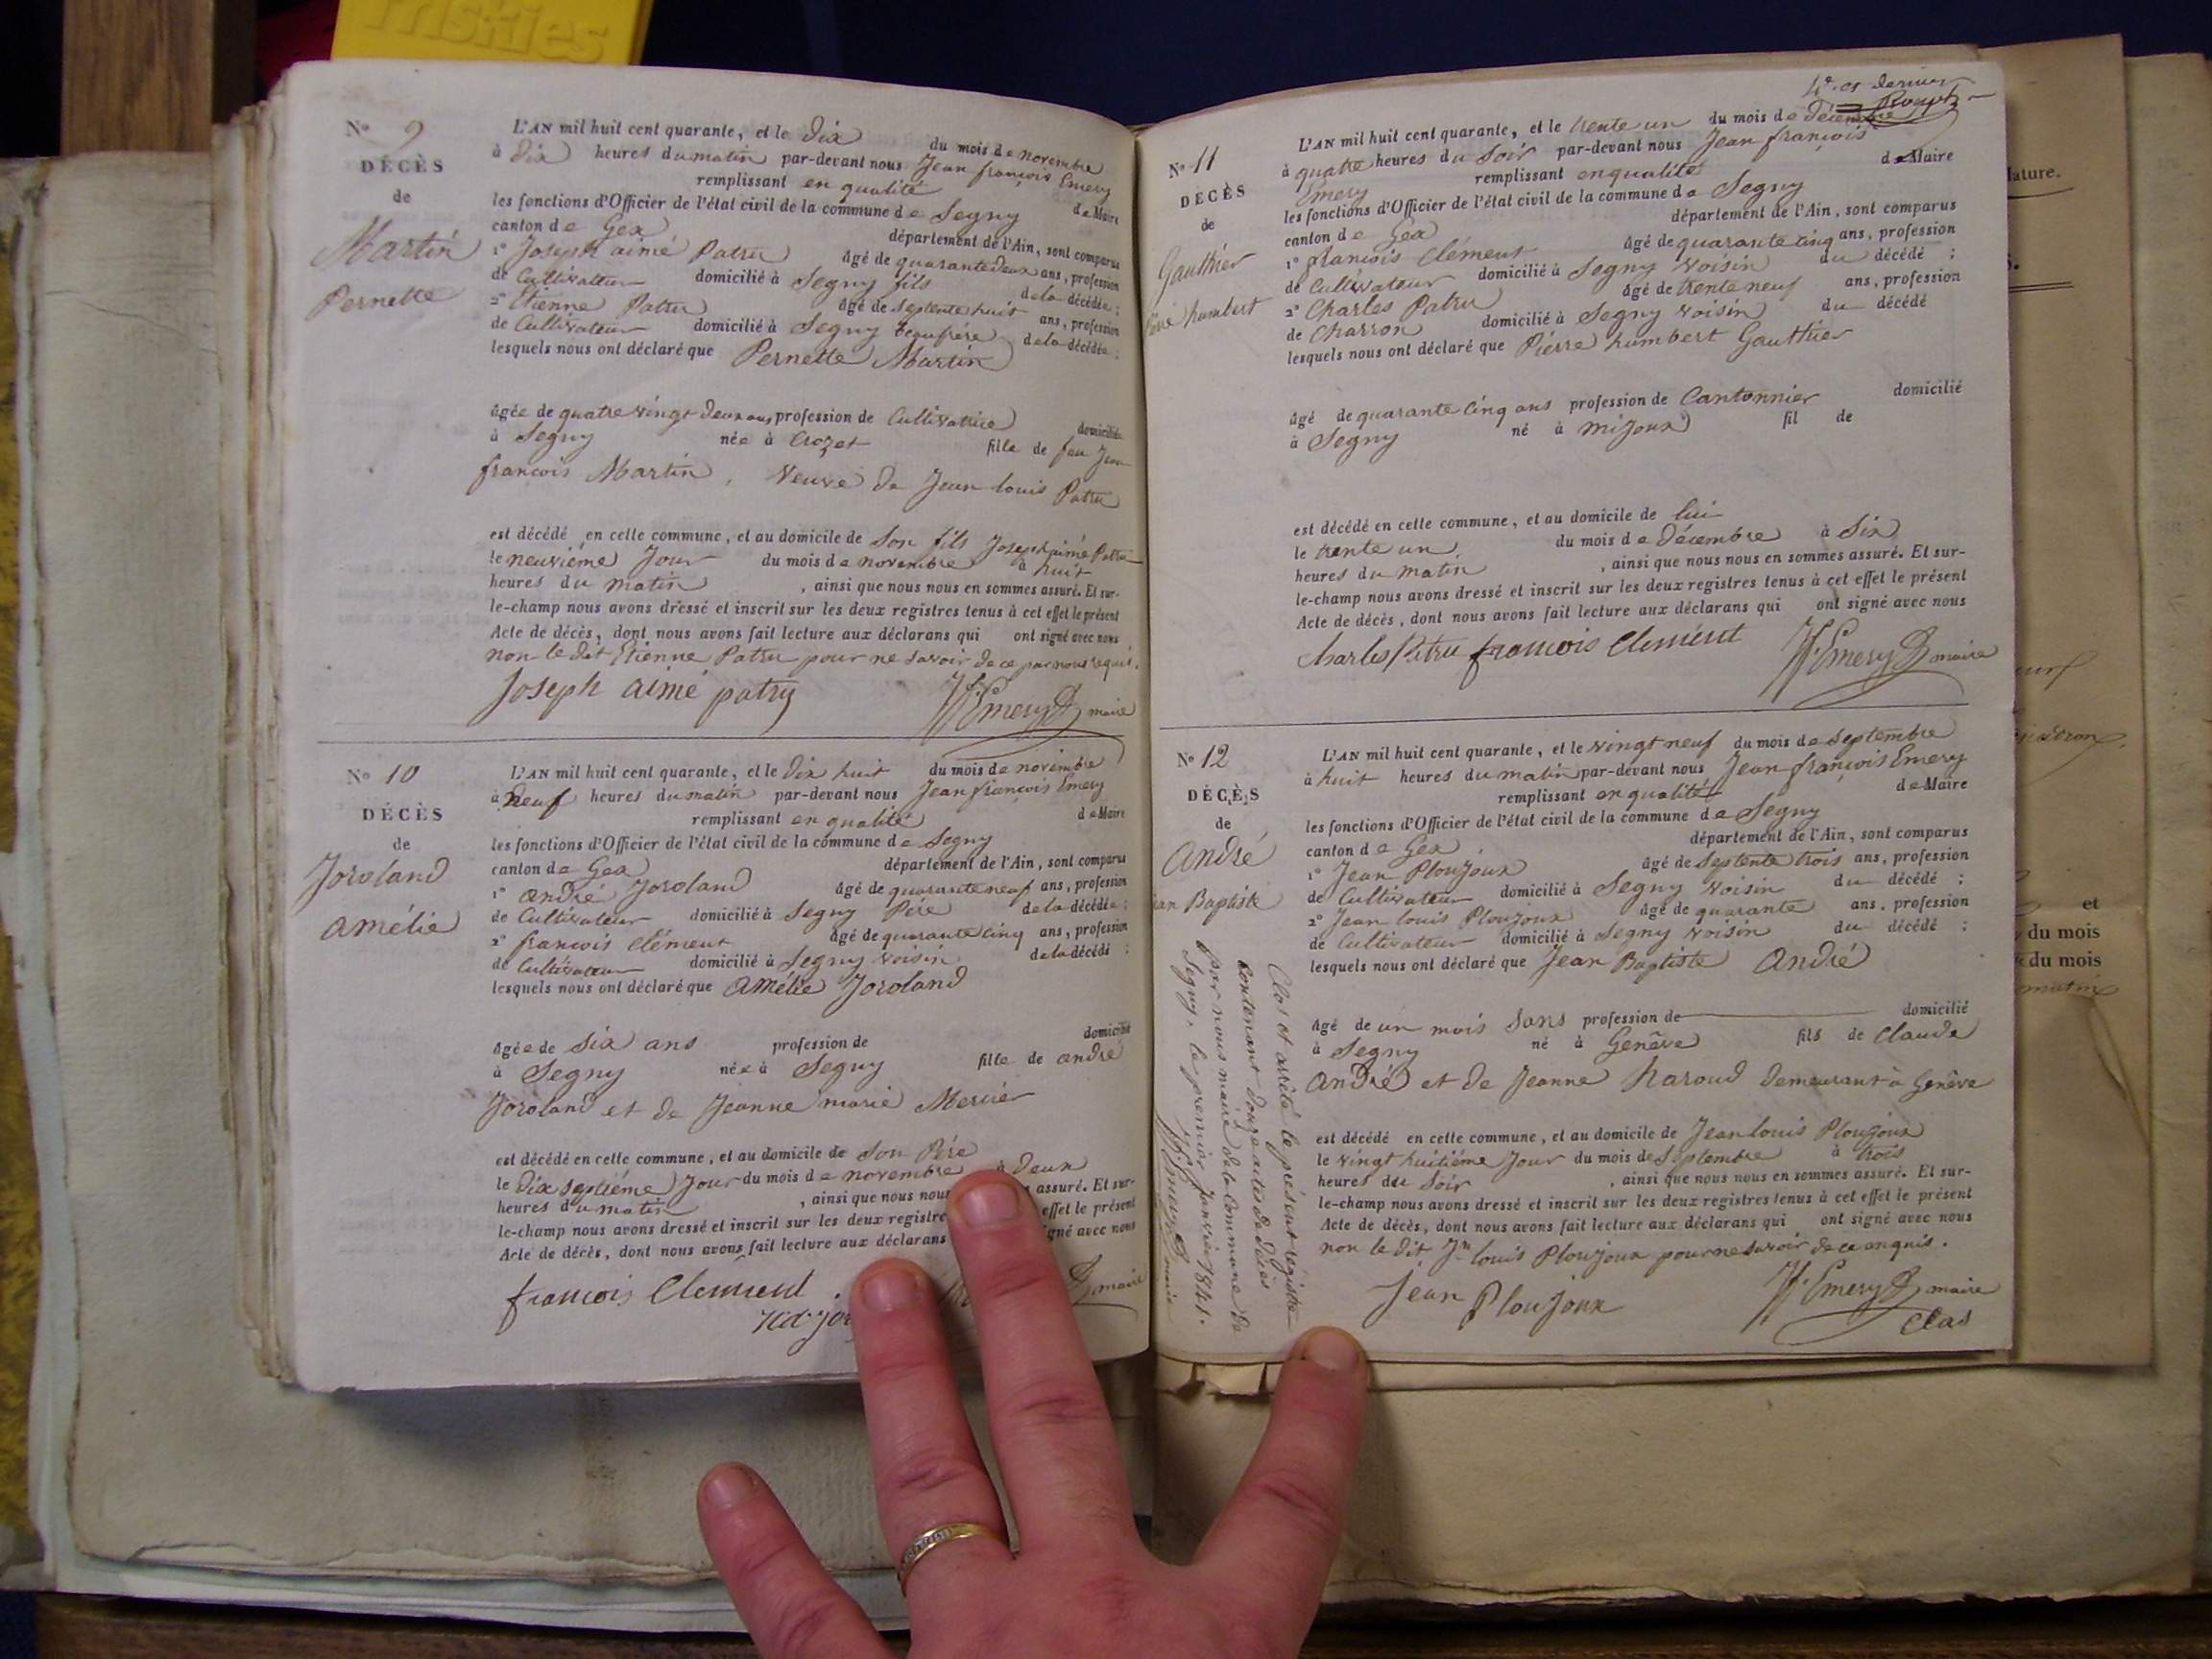 Friskies
No 9
DÉCÈS
de
Martin
Pernette
L'AN mil huit cent quarante, et le dix du mois de novembre
à dix heures du matin par-devant nous Jean françois Emery
remplissant en qualité de Maire
les fonctions d'Officier de l'état civil de la commune de Segny
canton de Gex département de l'Ain, sont comparus
1° Joseph aimé Patru âgé de quarante deux ans, profession
de Cultivateur domicilié à Segny fils de la décédée ;
2° Etienne Patru âgé de septente huit ans, profession
de Cultivateur domicilié à Segny beaufrére de la décédée ;
lesquels nous ont déclaré que Pernette Martin
âgée de quatre vingt deux ans profession de Cultivatrice domiciliée
à Segny née à Crozet fille de feu Jean
françois Martin, Veuve de Jean louis Patru
est décédé en cette commune, et au domicile de son fils Joseph aimé Patru
le neuviéme Jour du mois de novembre à huit
heures du matin , ainsi que nous nous en sommes assuré. Et sur-
le-champ nous avons dressé et inscrit sur les deux registres tenus à cet effet le présent
Acte de décès, dont nous avons fait lecture aux déclarans qui ont signé avec nous
non le dit Etienne Patru pour ne savoir de ce par nous requis.
Joseph aimé patru
Jf. Emery maire
No 10
DÉCÈS
de
Joroland
amélie
L'AN mil huit cent quarante, et le dix huit du mois de novembre
à neuf heures du matin par-devant nous Jean françois Emery
remplissant en qualité de Maire
les fonctions d'Officier de l'état civil de la commune de Segny
canton de Gex département de l'Ain, sont comparus
1° andré Joroland âgé de quarante neuf ans, profession
de Cultivateur domicilié à Segny Pére de la décédée ;
2° françois Clément âgé de quarante cinq ans, profession
de Cultivateur domicilié à Segny voisin de la décédé ;
lesquels nous ont déclaré que amélie Joroland
âgée de six ans profession de domicilié
à Segny née à Segny fille de andré
Joroland et de Jeanne marie Mercier
est décédé en cette commune, et au domicile de son Pére
le dix septiéme Jour du mois de novembre à deux
heures du matin , ainsi que nous nous assuré. Et sur-
le-champ nous avons dressé et inscrit sur les deux registre effet le présent
Acte de décès, dont nous avons fait lecture aux déclarans gné avec nous
françois Clement
maire
4e et dernier
No 11
DÉCÈS
de
Gauthier
humbert
L'AN mil huit cent quarante, et le trente un du mois de décembre
à quatre heures du soir par-devant nous Jean françois
Emery remplissant en qualité de Maire
les fonctions d'Officier de l'état civil de la commune de Segny
canton de Gex département de l'Ain, sont comparus
1° françois Clément âgé de quarante cinq ans, profession
de Cultivateur domicilié à Segny voisin du décédé ;
2° Charles Patru âgé de trente neuf ans, profession
de Charron domicilié à Segny voisin du décédé
lesquels nous ont déclaré que Pierre humbert Gauthier
âgé de quarante cinq ans profession de Cantonnier domicilié
à Segny né à mijoux fil de
est décédé en cette commune, et au domicile de lui
le trente un du mois de décembre à six
heures du matin , ainsi que nous nous en sommes assuré. Et sur-
le-champ nous avons dressé et inscrit sur les deux registres tenus à cet effet le présent
Acte de décès, dont nous avons fait lecture aux déclarans qui ont signé avec nous
Charles Patru françois Clement Jf. Emery maire
No 12
DÉCÈS
de
andré
Baptiste
L'AN mil huit cent quarante, et le vingt neuf du mois de septembre
à huit heures du matin par-devant nous Jean françois Emery
remplissant en qualité de Maire
les fonctions d'Officier de l'état civil de la commune de Segny
canton de Gex département de l'Ain, sont comparus
1° Jean Ploujoux âgé de septente trois ans, profession
de Cultivateur domicilié à Segny voisin du décédé ;
2° Jean louis Ploujoux âgé de quarante ans, profession
de Cultivateur domicilié à Segny voisin du décédé ;
lesquels nous ont déclaré que Jean Baptiste andré
âgé de un mois sans profession de domicilié
à Segny né à Genêve fils de Claude
andré et de Jeanne haroud demeurant à Genêve
est décédé en cette commune, et au domicile de Jean louis Ploujoux
le vingt huitiéme Jour du mois de septembre à trois
heures du soir , ainsi que nous nous en sommes assuré. Et sur-
le-champ nous avons dressé et inscrit sur les deux registres tenus à cet effet le présent
Acte de décès, dont nous avons fait lecture aux déclarans qui ont signé avec nous
non le dit Jn louis Ploujoux pour ne savoir de ce enquis.
Jean Ploujoux
Jf. Emery maire
Clos
Clos et arrêté le présent régistre
Contenant douze actes de décès
par nous maire de la Commune de
Segny, le premier Janvier 1841.
Jf Emery maire
lature.
s.
et
du mois
du mois